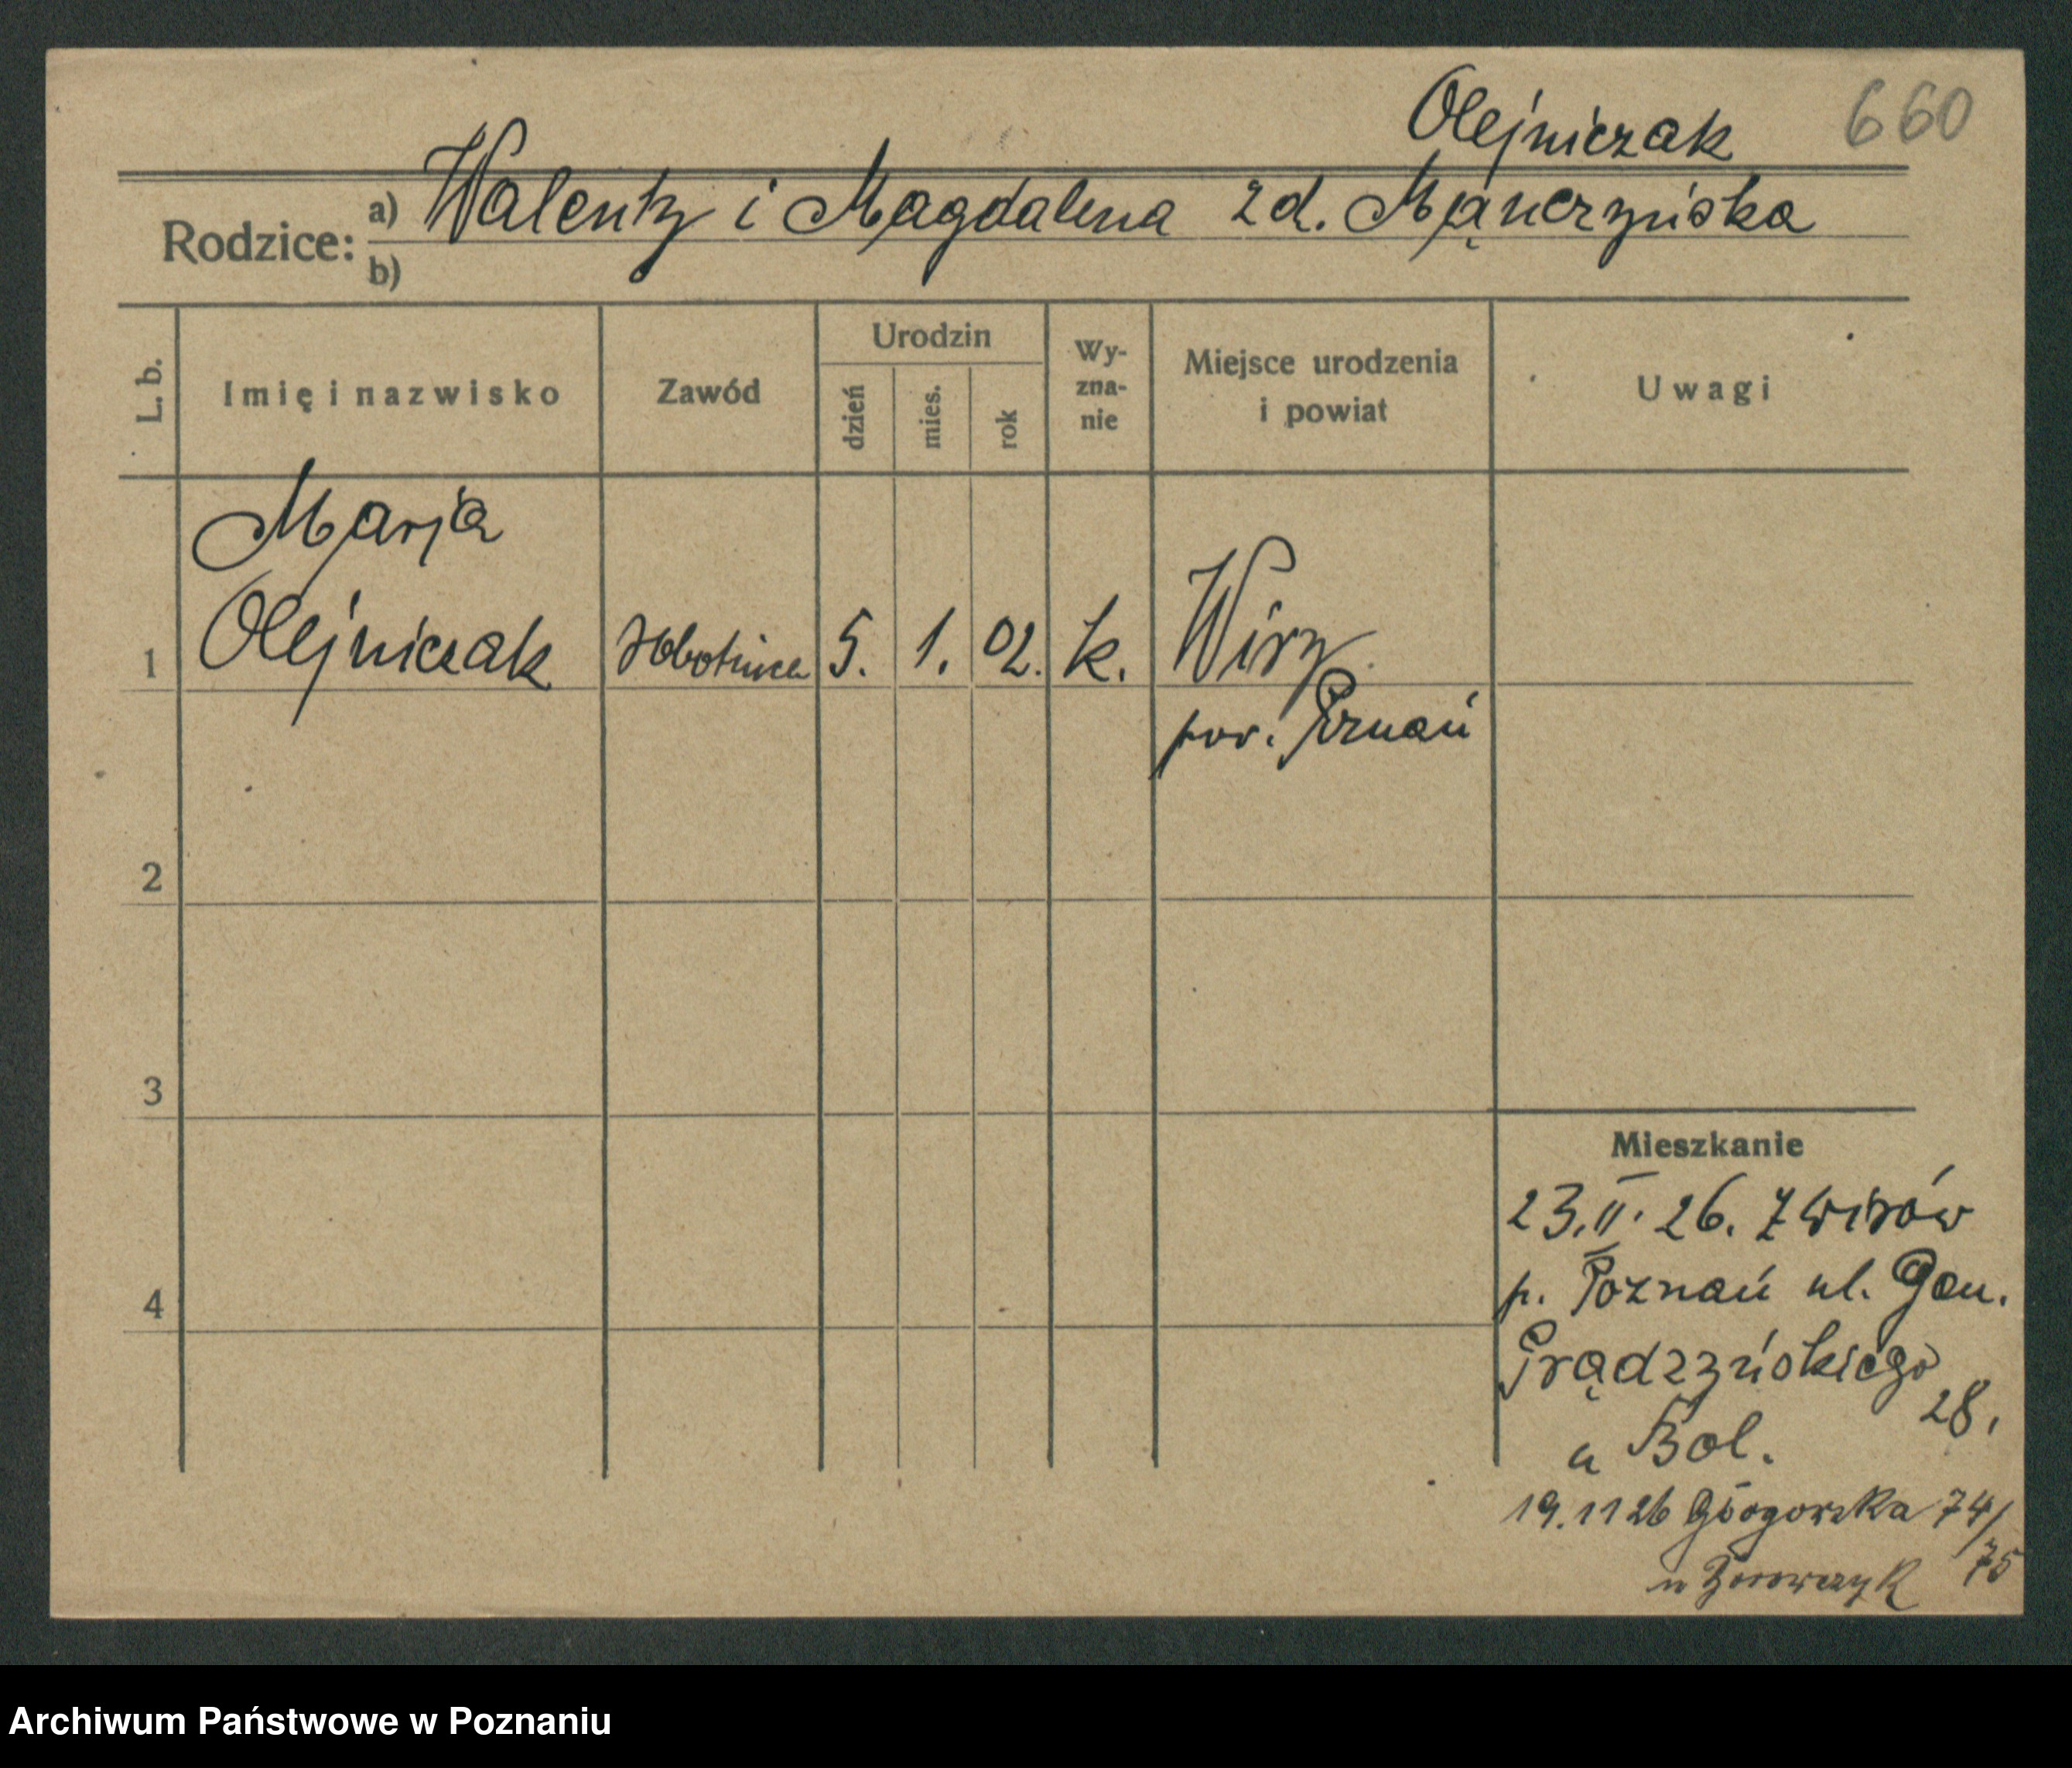 Olejniczak 660
Rodzice: a) Walenty i Magdalena zd. Mączczyńska
b)
L. b. Imię i nazwisko Zawód Urodzin dzień mies. rok Wy-zna-nie Miejsce urodzenia i powiat Uwagi
Marja
1 Olejniczak Robotnica 5. 1. 02. k. Wiry
pow. Poznań
2
3
Mieszkanie
23.II.26. z Wirów
4 p. Poznań ul. Gen.
Prądzyńskiego
28.
u Bol.
19.11 26 74/
u 75
Archiwum Państwowe w Poznaniu